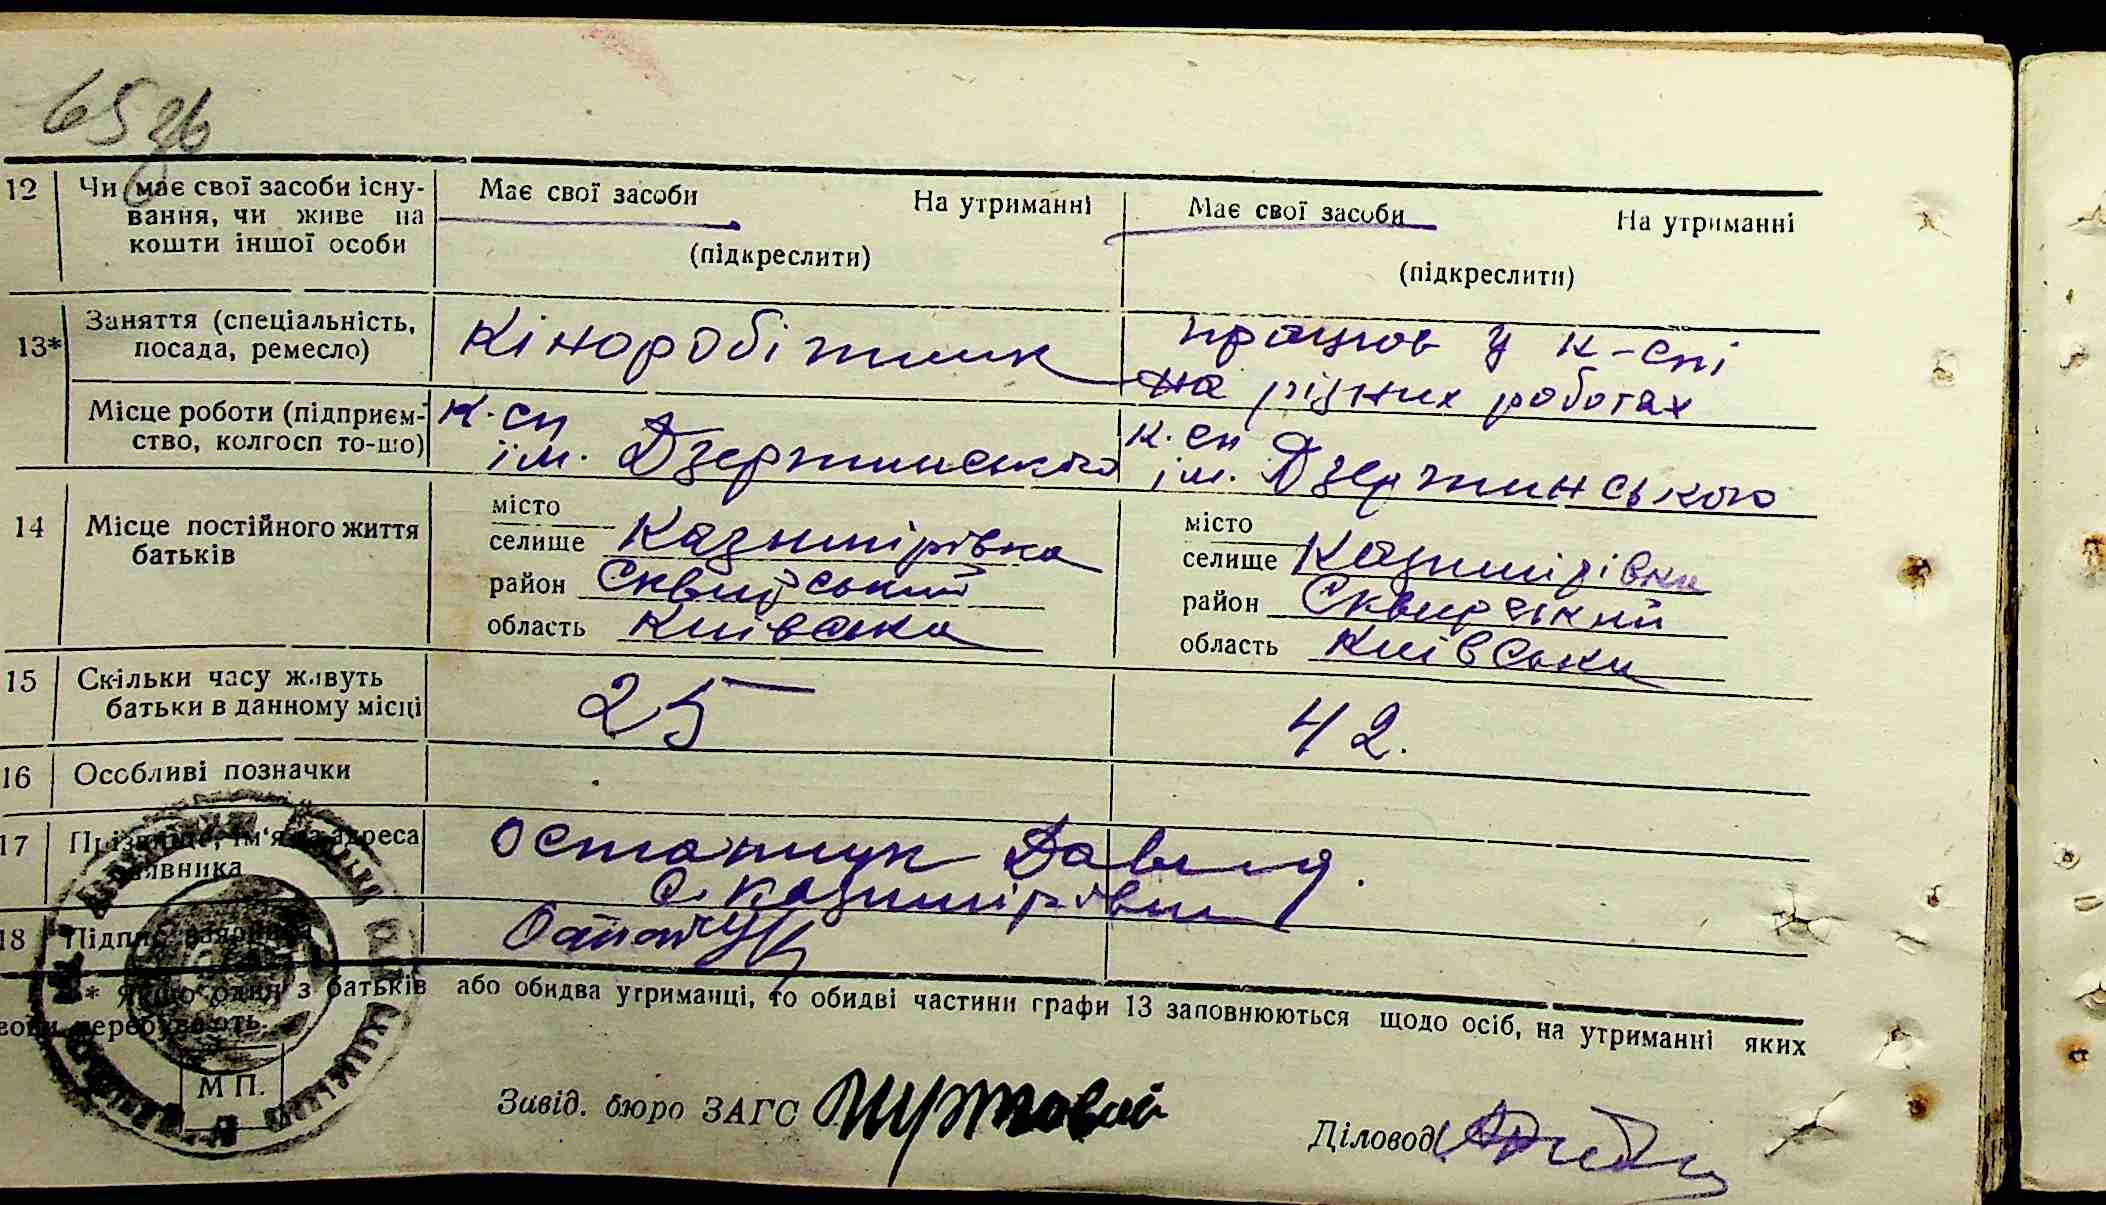 65зв
12 Чи має свої засоби існу- Має свої засоби На утриманні Має свої засоби На утриманні
вання, чи живе на
кошти іншої особи (підкреслити) (підкреслити)
13* Заняття (спеціальність, Кіноробітник працюв у к-спі
посада, ремесло) на різних роботах
Місце роботи (підприєм- К. сп к. сп
ство, колгосп то-що) ім. Дзержинського ім. Дзержинського
14 Місце постійного життя місто місто
батьків селище Казимірівка селище Казимірівка
район Сквирський район Сквирський
область Київська область Київська
15 Скільки часу живуть 25 42.
батьки в данному місці
16 Особливі позначки
17 Прізвище, ім'я та адреса Остапчук Давид.
заявника с. Казимірівка
18 Підпис заявника Остапчук
* Якщо один з батьків або обидва утриманці, то обидві частини графи 13 заповнюються щодо осіб, на утриманні яких
вони перебувають.
М П.
Завід. бюро ЗАГС
Діловод